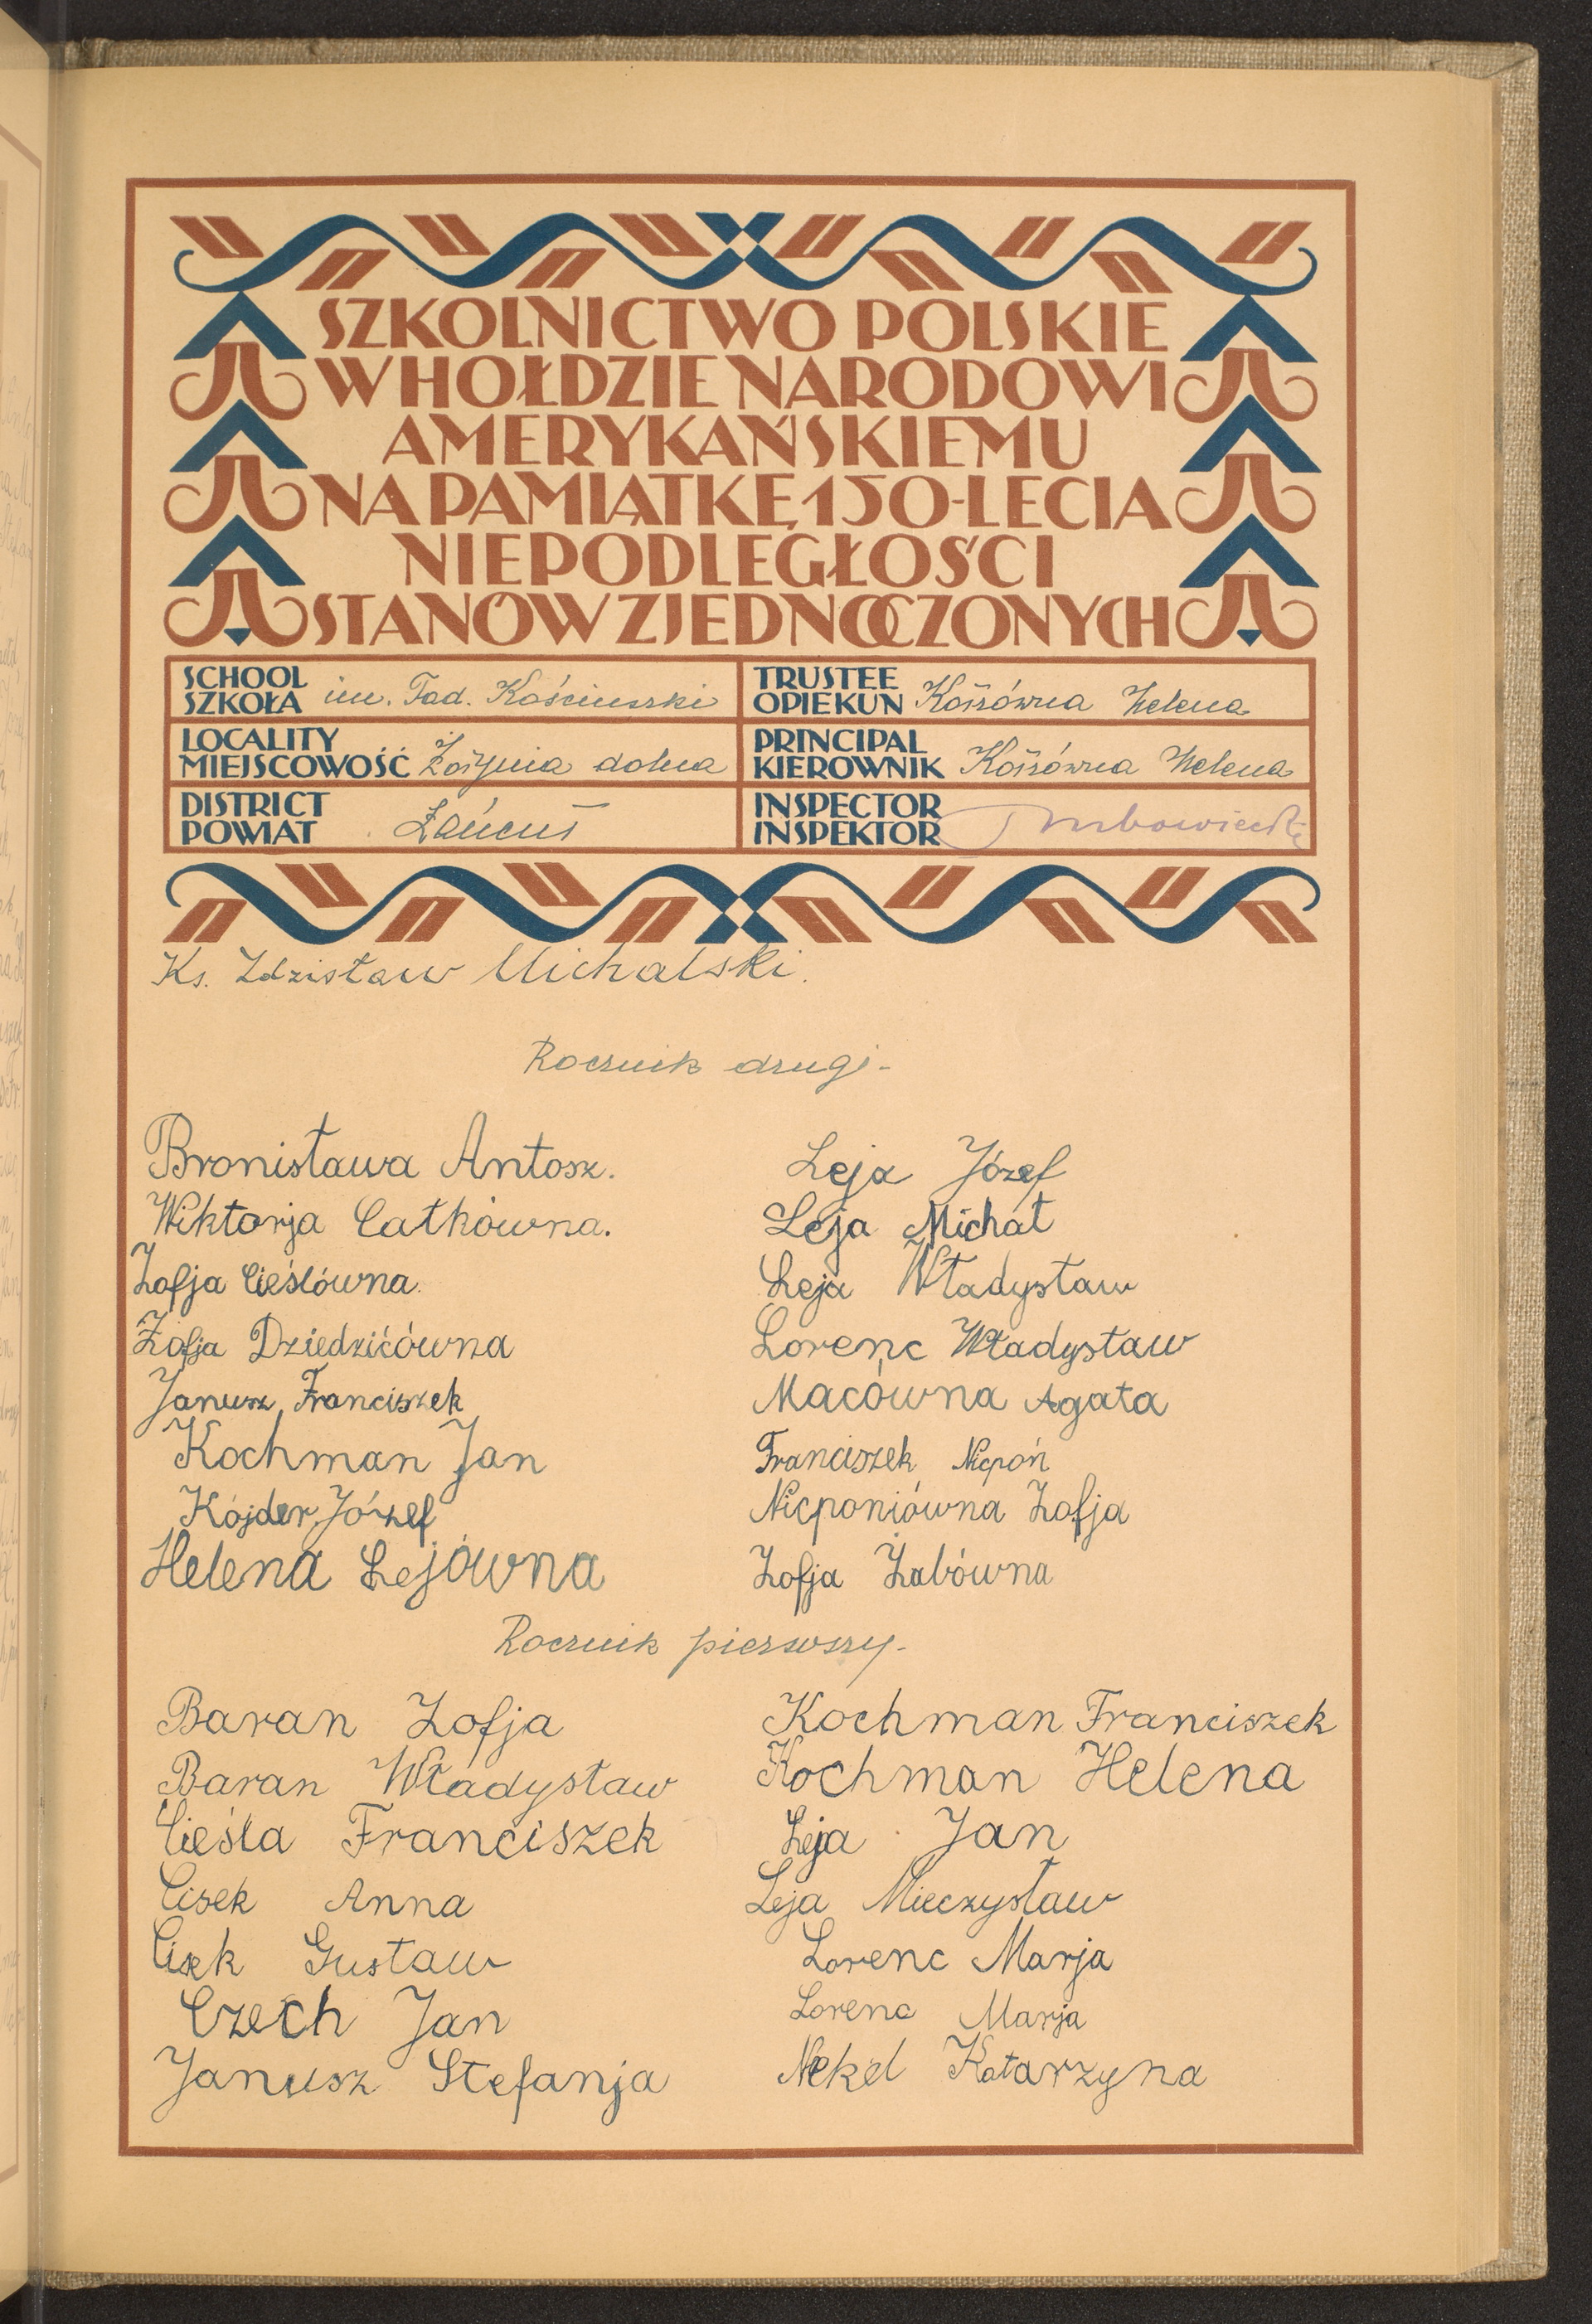 SZKOLNICTWO POLSKIE
W HOŁDZIE NARODOWI
AMERYKAŃSKIEMU
NA PAMIĄTKĘ 150-LECIA
NIEPODLEGŁOŚCI
STANÓW ZJEDNOCZONYCH
SCHOOL
SZKOŁA im. Tad. Kościuszki
TRUSTEE
OPIEKUN Helena
LOCALITY
MIEJSCOWOŚĆ Żołynia dolna
PRINCIPAL
KIEROWNIK Helena
DISTRICT
POWIAT Łańcut
INSPECTOR
INSPEKTOR
Ks. Zdzisław Michalski.
Rocznik drugi-
Bronisława Antosz.
Wiktorja Całkówna.
Zofja Cieślówna.
Zofja Dziedzićówna
Janusz Franciszek
Kochman Jan
Kojder Józef
Helena Lejówna
Leja Józef
Leja Michał
Leja Władysław
Lorenc Władysław
Macówna Agata
Franciszek Nicpoń
Nicponiówna Zofja
Zofja Żabówna
Rocznik pierwszy-
Baran Zofja
Baran Władysław
Cieśla Franciszek
Cisek Anna
Cisek Gustaw
Czech Jan
Janusz Stefanja
Kochman Franciszek
Kochman Helena
Leja Jan
Leja Mieczysław
Lorenc Marja
Lorenc Marja
Nekel Katarzyna